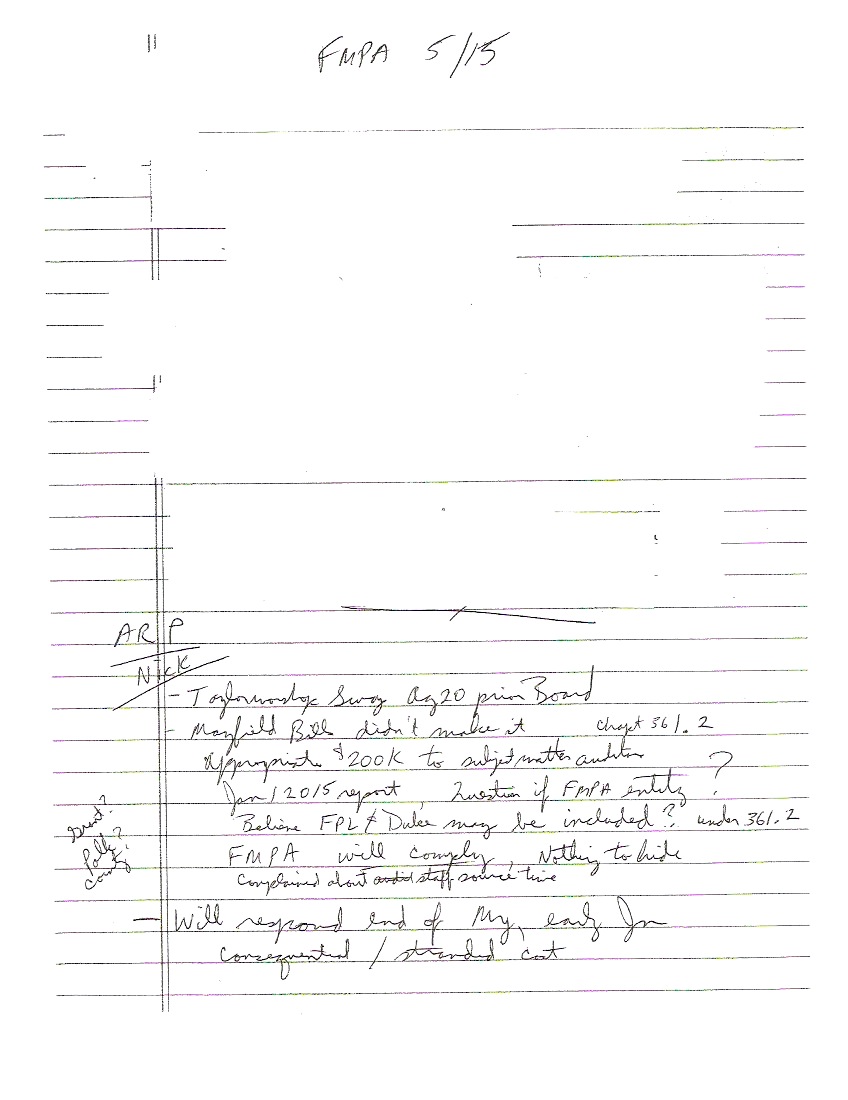 FMPA 5/15
ARP
Nick
- Taylor workshop Aug 20 prior Board
- Mayfield Bill didn't make it chapt 361.2
Appropriate $200K to subject matter auditor
Jan 1 2015 report, Question if FMPA entity ?
Believe FPL & Duke may be included? under 361.2
Grant?
Polk?
County?
FMPA will comply, Nothing to hide
Complained about staff source time
— Will respond end of My, early Jn
Consequential / stranded cost